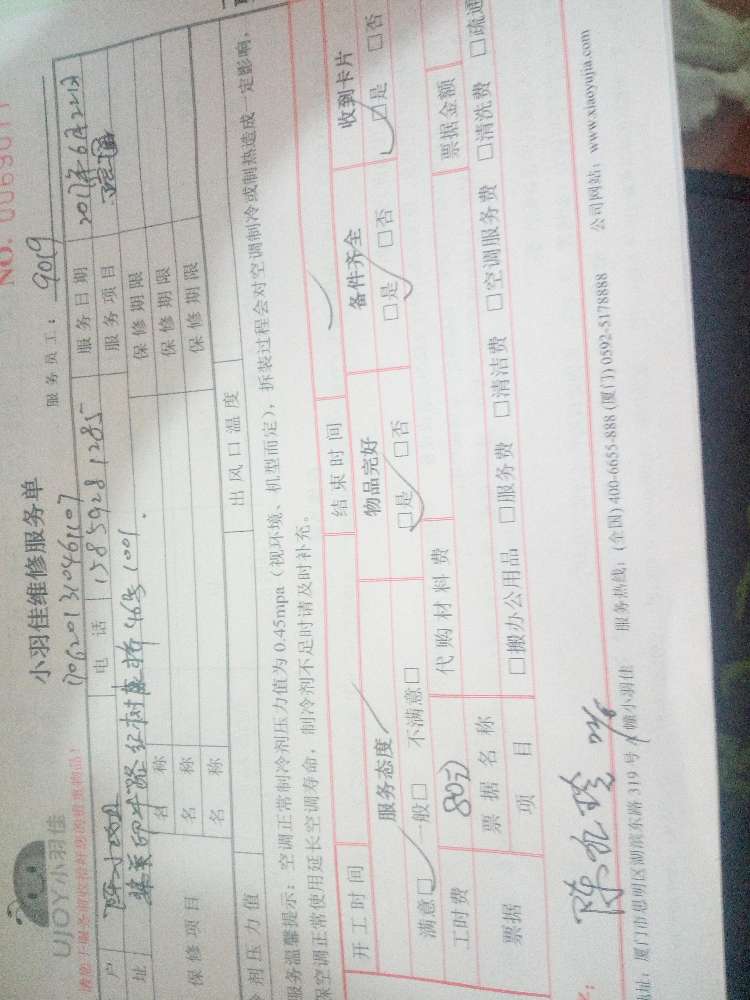 NO. 0069011
UJOY小羽佳
小羽佳维修服务单
服务员工：9019
请您于服务前收拾好您的贵重物品！
1706201310461107
户 电话 15859281285 服务日期 2017年6月22日
址 46号1001. 服务项目
保修项目 名称 保修期限
名称 保修期限
名称 保修期限
冷剂压力值 出风口温度
服务温馨提示：空调正常制冷剂压力值为0.45mpa（视环境、机型而定），拆装过程会对空调制冷或制热造成一定影响，
保空调正常使用延长空调寿命，制冷剂不足时请及时补充。
开工时间 结束时间
服务态度 物品完好 备件齐全 收到卡片
满意□ 一般□ 不满意□ □是 □否 □是 □否 □是 □否
工时费 80元 代购材料费 票据金额
票据 票据名称
项目 □搬办公用品 □服务费 □清洁费 □空调服务费 □清洗费 □疏通
地址：厦门市思明区湖滨东路319号A幢小羽佳 服务热线：(全国) 400-6655-888 (厦门) 0592-5178888 公司网站：www.xiaoyujia.com